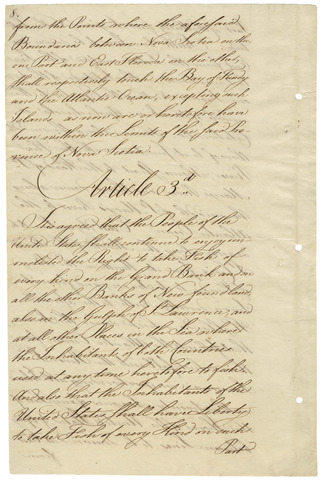 8.
from the Points where the aforesaid
Boundaries between Nova Scotia on the
one Part and East Florida on the other,
shall respectively touch the Bay of Fundy
and the Atlantic Ocean, excepting such
Islands as now are or heretofore have
been within the Limits of the said Pro-
vince of Nova Scotia.
Article 3.d
It is agreed that the People of the
United States shall continue to enjoy un-
molested the Right to take Fish of
every kind on the Grand Bank and on
all the other Banks of New-foundland,
also in the Gulph of St. Lawrence, and
at all other Places in the Sea where
the Inhabitants of both Countries
used at any time heretofore to fish.
And also that the Inhabitants of the
United States shall have Liberty
to take Fish of every Kind on such
Part